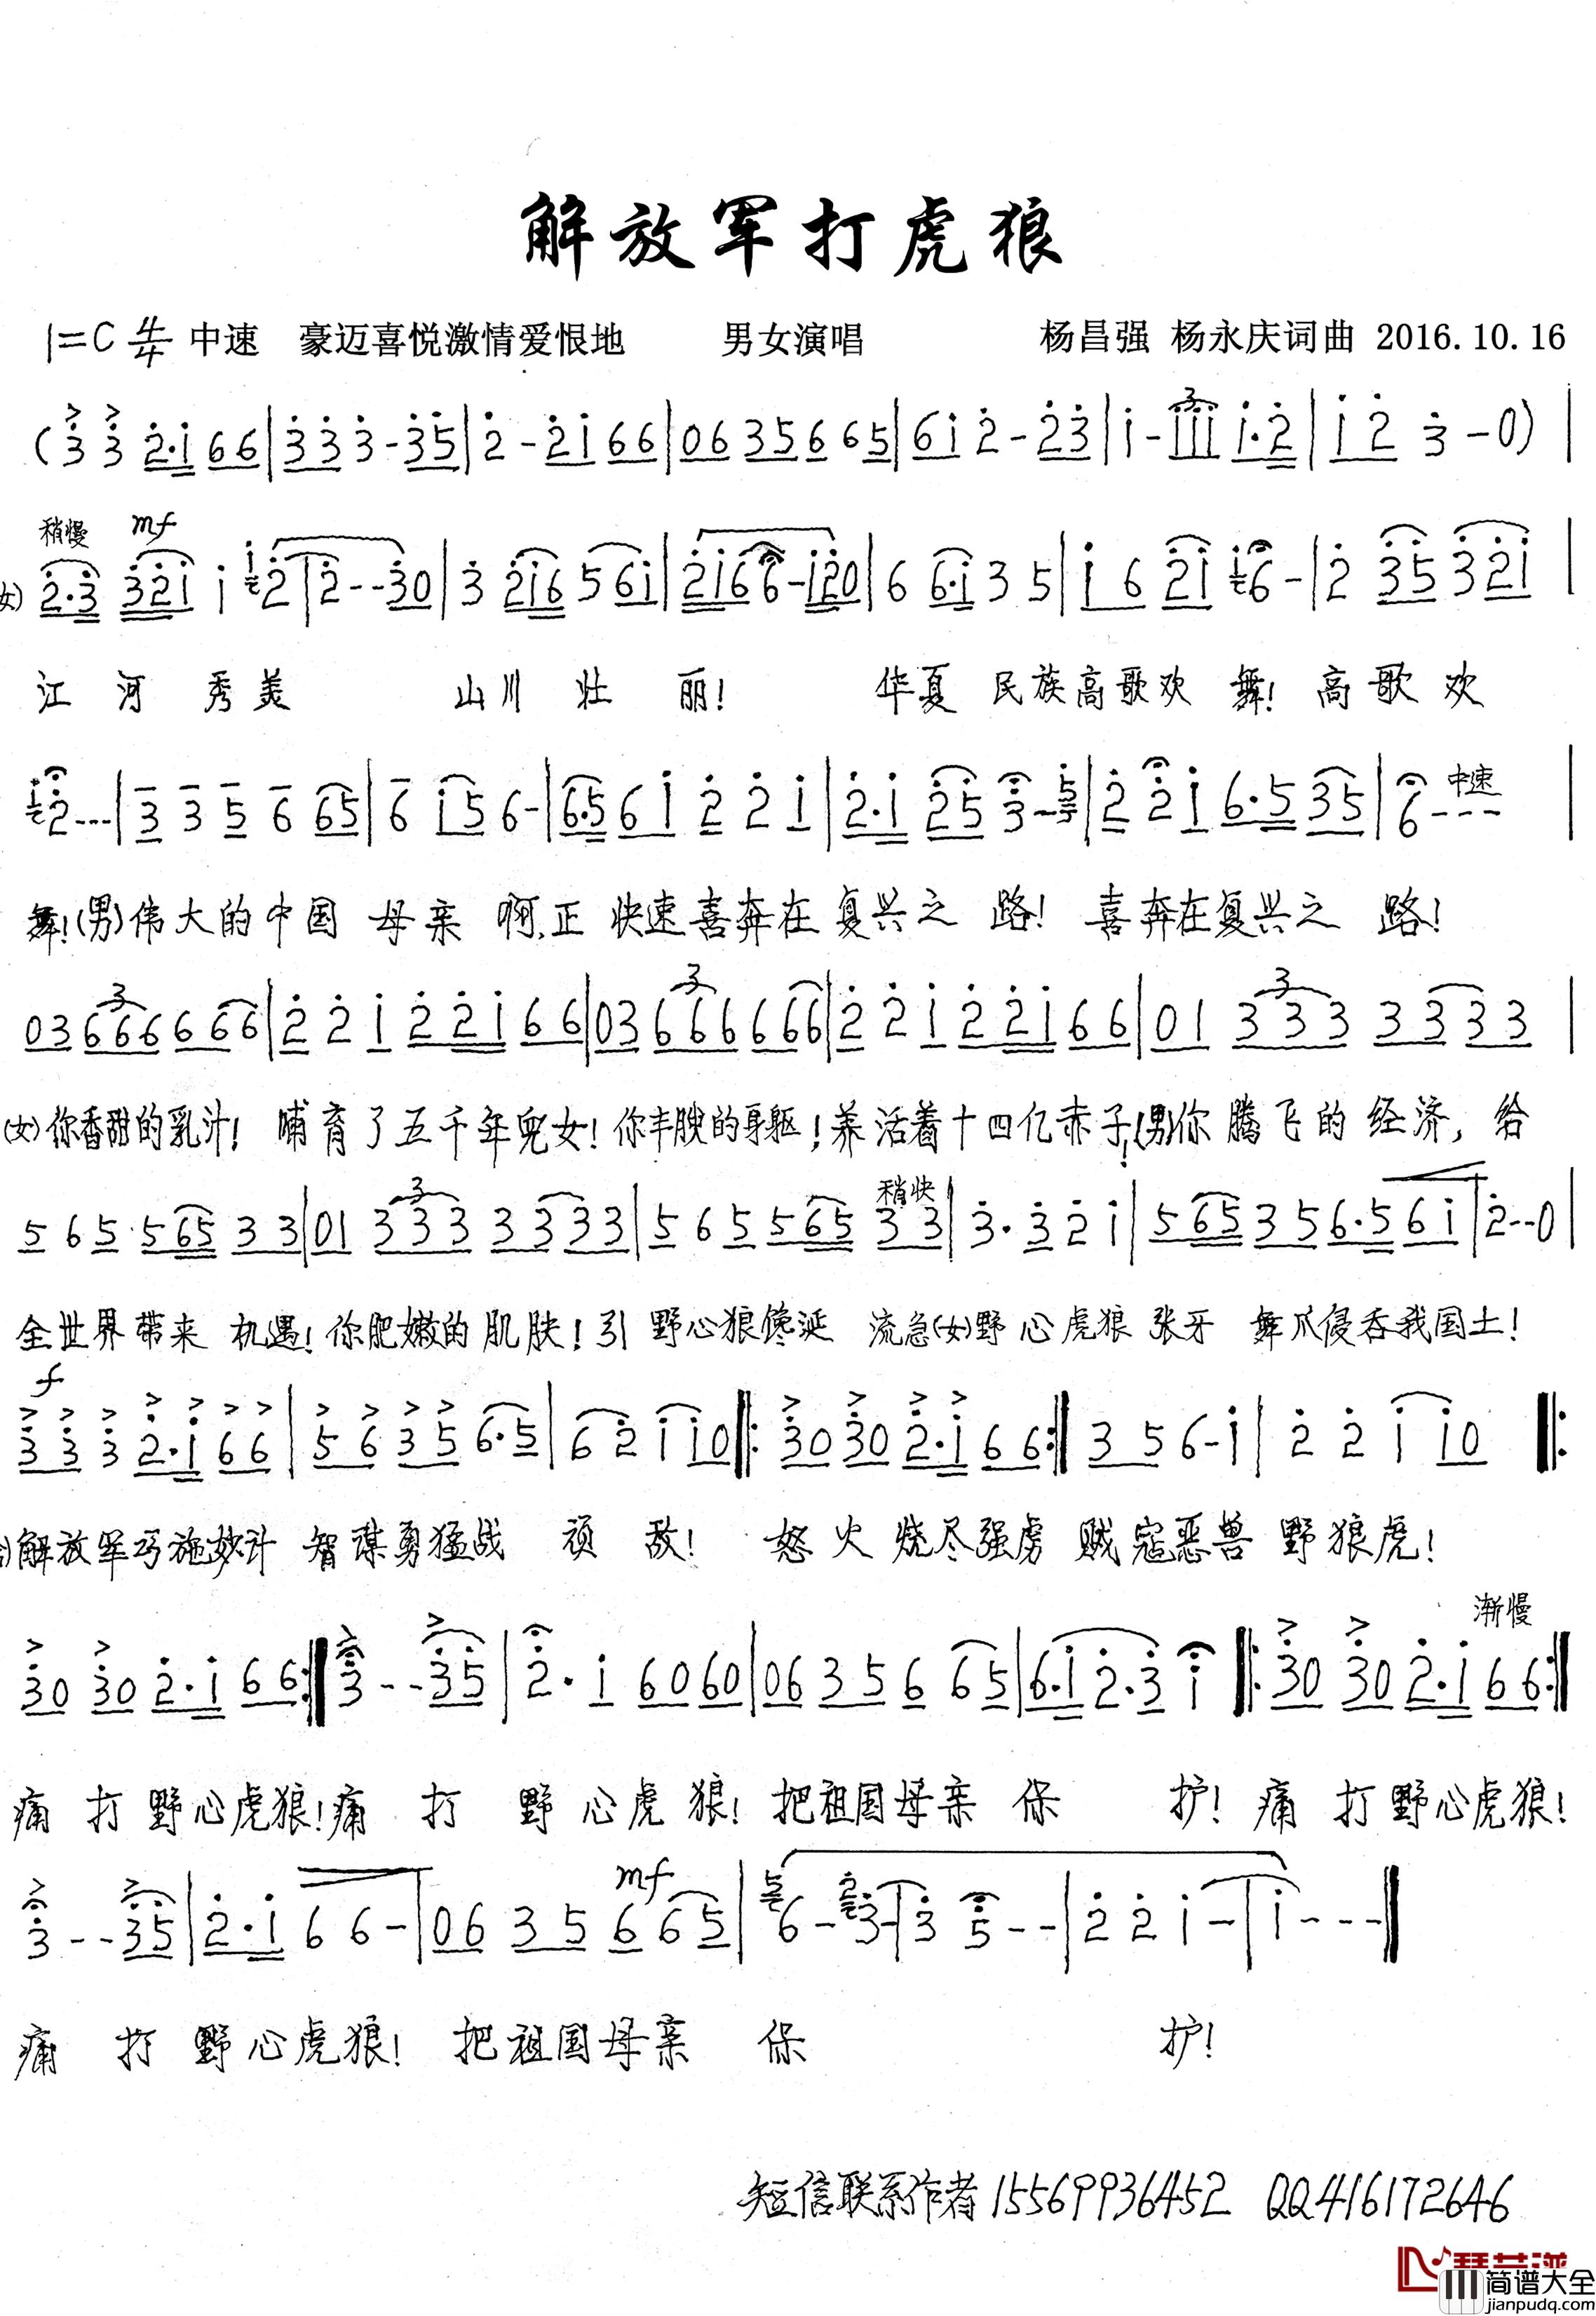 解放军打虎狼
1=C 4/4 中速 豪迈喜悦激情爱恨地 男女演唱 杨昌强 杨永庆词曲 2016.10.16
(3 3 2·1 66|333-35|2-2166|06356 65|61 2-23|1-111 1·2|1 2 3-0)|
稍慢 mf
女) 2·3 321 1 2|2--30|3 216 5 61|2166-120|6 6·1 3 5|1 6 21 6-|2 35 3 21|
江河秀美 山川壮丽! 华夏民族高歌欢舞! 高歌欢
中速
2---|3 3 5 6 65|6 15 6-|6·5 61 2 2 1|2·1 25 3-5|2 2 1 6·5 35|6---|
舞!(男)伟大的中国 母亲 啊,正 快速喜奔在复兴之路! 喜奔在复兴之路!
3 3 3
03 666 6 66|2 2 1 2 21 66|03 666 6 66|2 2 1 2 21 66|01 333 33 33|
(女)你香甜的乳汁! 哺育了五千年儿女! 你丰腴的身躯! 养活着十四亿赤子!(男)你腾飞的经济, 给
3 稍快
5 6 5 5 65 33|01 333 33 33|5 6 5 5 65 33|3·3 2 1|565 35 6·5 61|2--0|
全世界带来机遇! 你肥嫩的肌肤! 引野心狼馋涎流急(女)野心虎狼张牙舞爪侵吞我国土!
f
33 3 2·1 66|56 35 6·5|6 2 1 10‖:30 30 2·1 66:‖3 5 6-1|2 2 1 10‖:
解放军巧施妙计 智谋勇猛战顽敌! 怒火烧尽强虏 贼寇恶兽野狼虎!
渐慢
30 30 2·1 66:‖3--35|2·1 60 60|06 35 6 65|6·1 2·3 1‖:30 30 2·1 66:‖
痛打野心虎狼! 痛打野心虎狼! 把祖国母亲保护! 痛打野心虎狼!
mf
3--35|2·1 6 6-|06 35 6 65|6-3-|3 5--|2 2 1-|1---‖
痛打野心虎狼! 把祖国母亲保护!
短信联系作者15569936452 QQ416172646
简谱大全
jianpudq.com